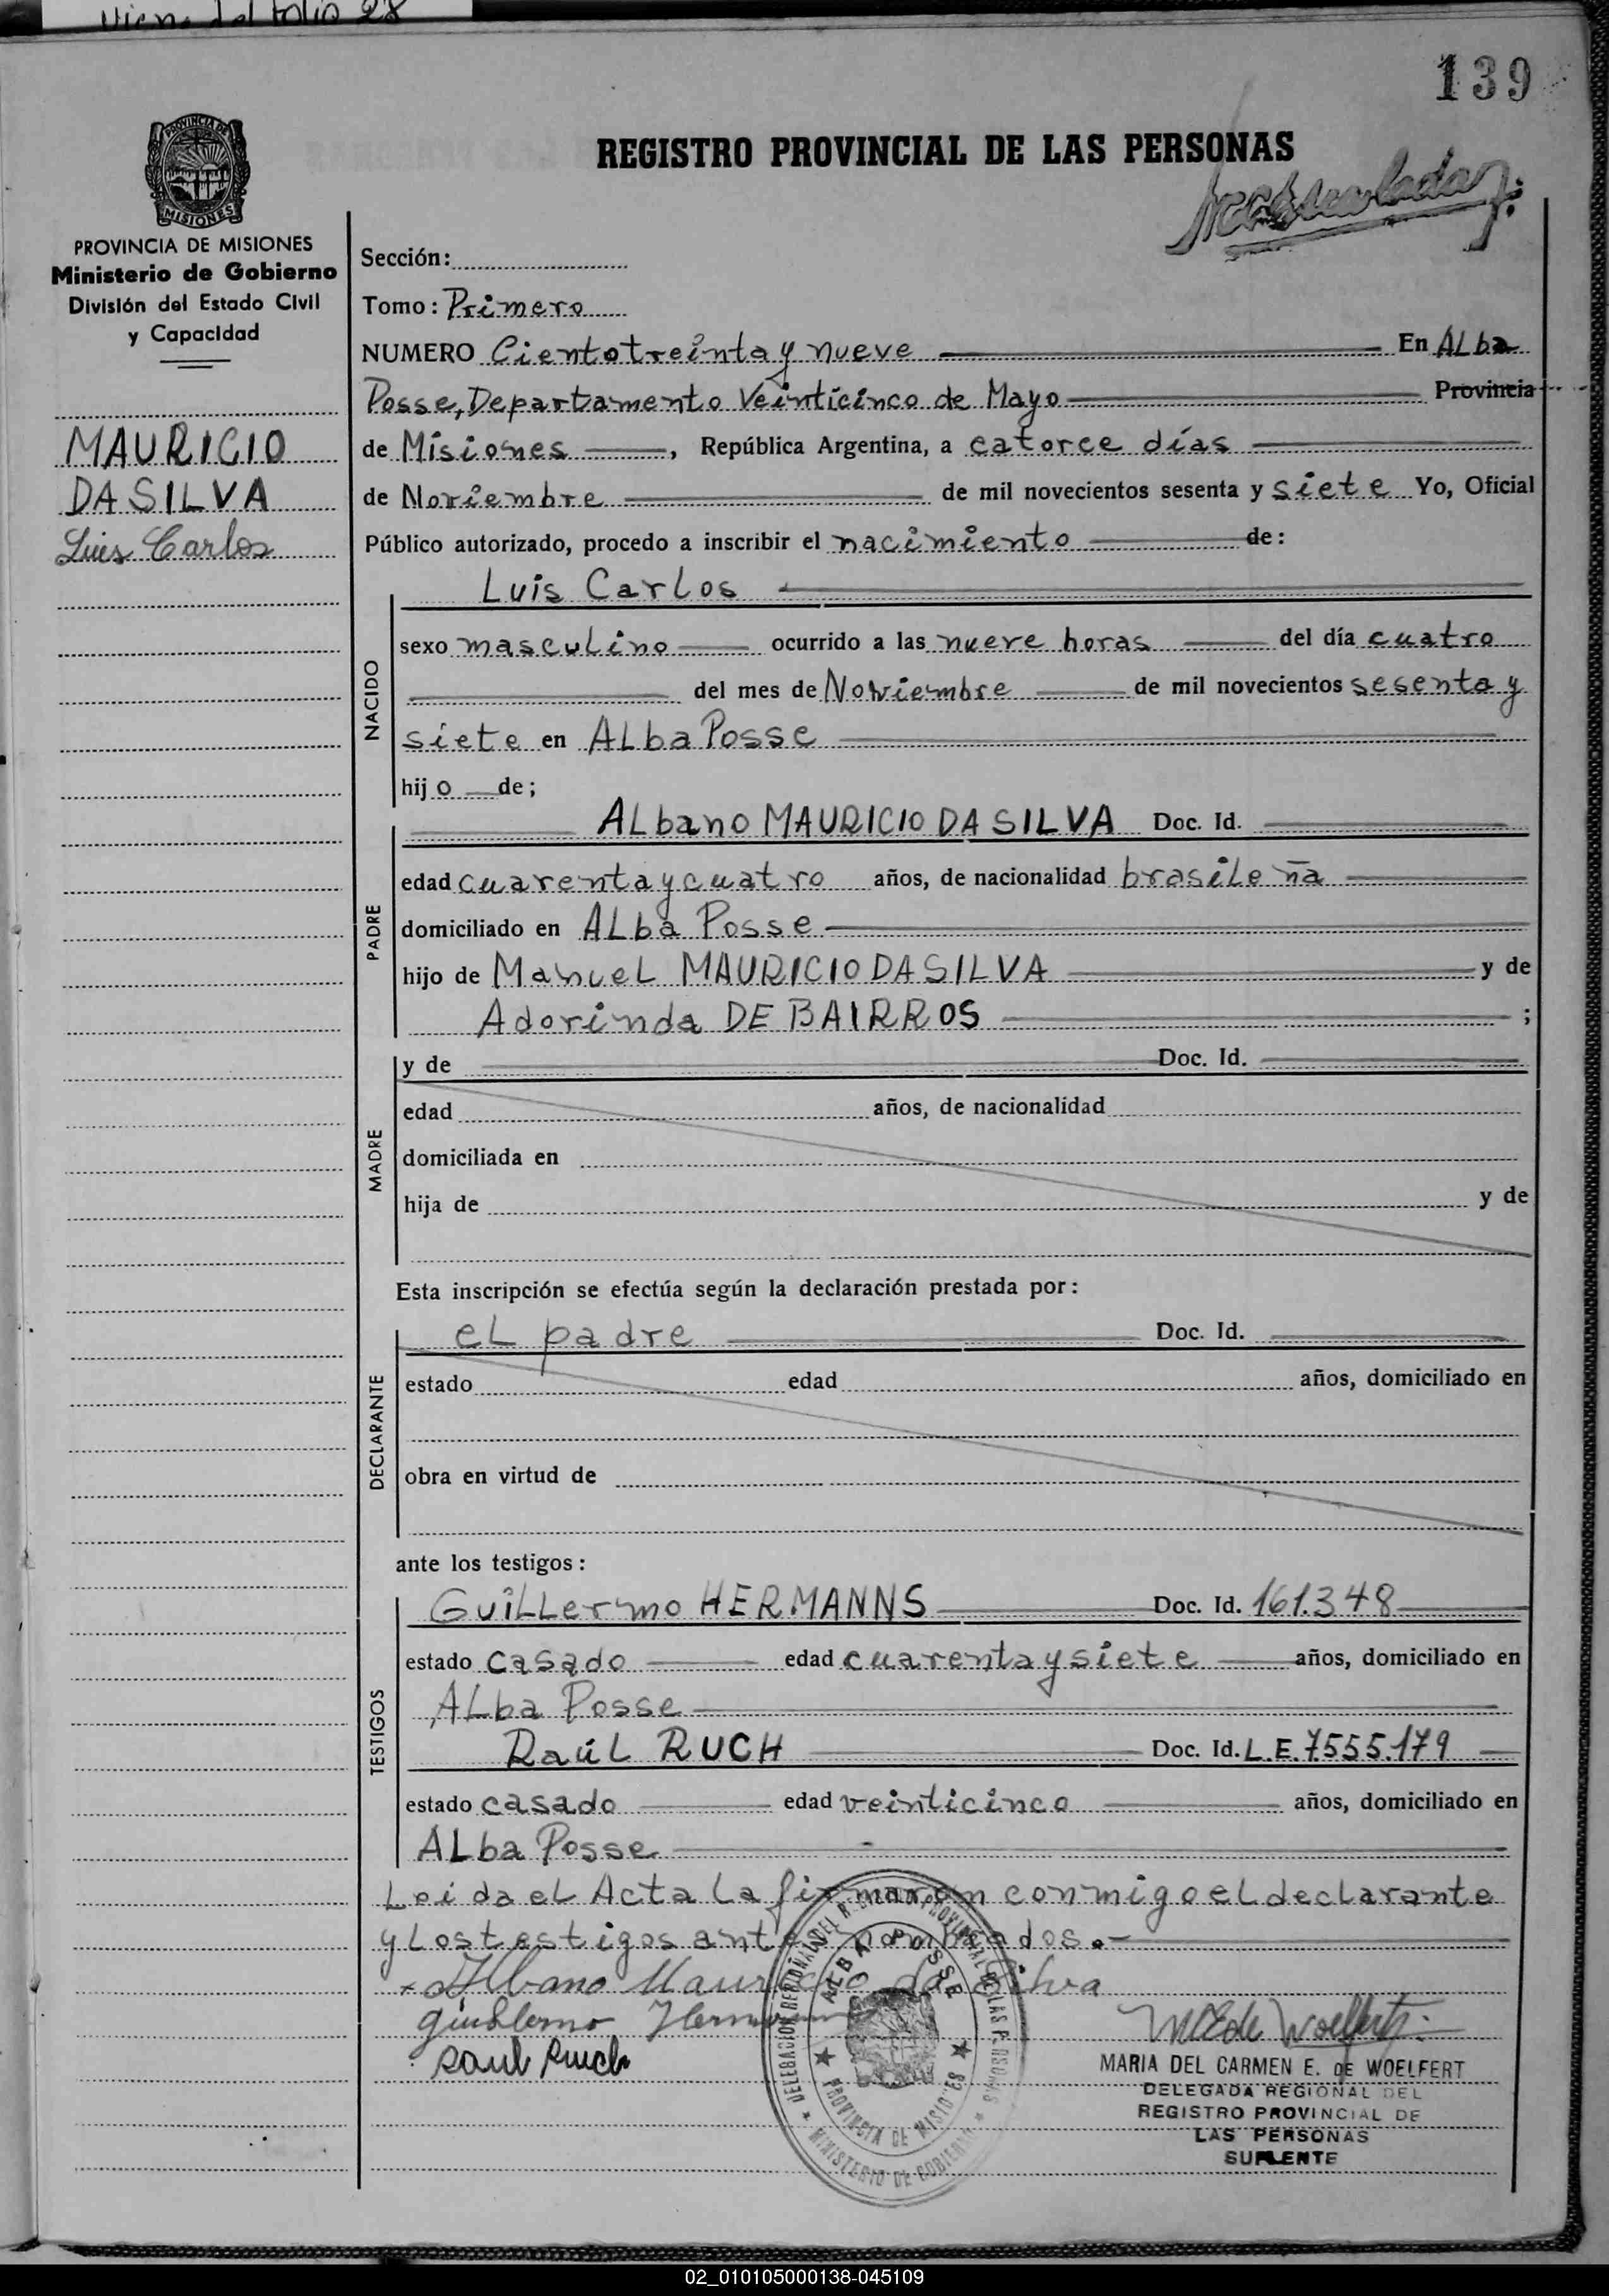 Viene del folio 28
139
REGISTRO PROVINCIAL DE LAS PERSONAS
PROVINCIA DE
MISIONES
PROVINCIA DE MISIONES
Ministerio de Gobierno
División del Estado Civil
y Capacidad
MAURICIO
DA SILVA
Luis Carlos
Sección:
Tomo: Primero
NUMERO Ciento treinta y nueve En ALba
Posse, Departamento Veinticinco de Mayo Provincia
de Misiones, República Argentina, a catorce días
de Noviembre de mil novecientos sesenta y siete Yo, Oficial
Público autorizado, procedo a inscribir el nacimiento de:
Luis Carlos
NACIDO
sexo masculino ocurrido a las nueve horas del día cuatro
del mes de Noviembre de mil novecientos sesenta y
siete en ALba Posse
hijo de;
ALbano MAURICIO DA SILVA Doc. Id.
PADRE
edad cuarenta y cuatro años, de nacionalidad brasileña
domiciliado en ALba Posse
hijo de ManueL MAURICIO DA SILVA y de
Adorinda DE BAIRROS ;
MADRE
y de Doc. Id.
edad años, de nacionalidad
domiciliada en
hija de y de
Esta inscripción se efectúa según la declaración prestada por:
eL padre Doc. Id.
DECLARANTE
estado edad años, domiciliado en
obra en virtud de
ante los testigos:
GuiLLermo HERMANNS Doc. Id. 161.348
TESTIGOS
estado casado edad cuarenta y siete años, domiciliado en
ALba Posse
RaúL RUCH Doc. Id. L.E. 7555.179
estado casado edad veinticinco años, domiciliado en
ALba Posse
Leida el Acta La firmaron conmigo eL declarante
y Los testigos ante nombrados.-
Albano Mauricio da Silva
Guilhermo Hermanns
Raul Ruch
DELEGACION REGIONAL DEL REGISTRO PROVINCIAL DE LAS PERSONAS
ALBA POSSE
PROVINCIA DE MISIONES
MINISTERIO DE GOBIERNO
MCEde Woelfert
MARIA DEL CARMEN E. DE WOELFERT
DELEGADA REGIONAL DEL
REGISTRO PROVINCIAL DE
LAS PERSONAS
SUPLENTE
02_010105000138-045109